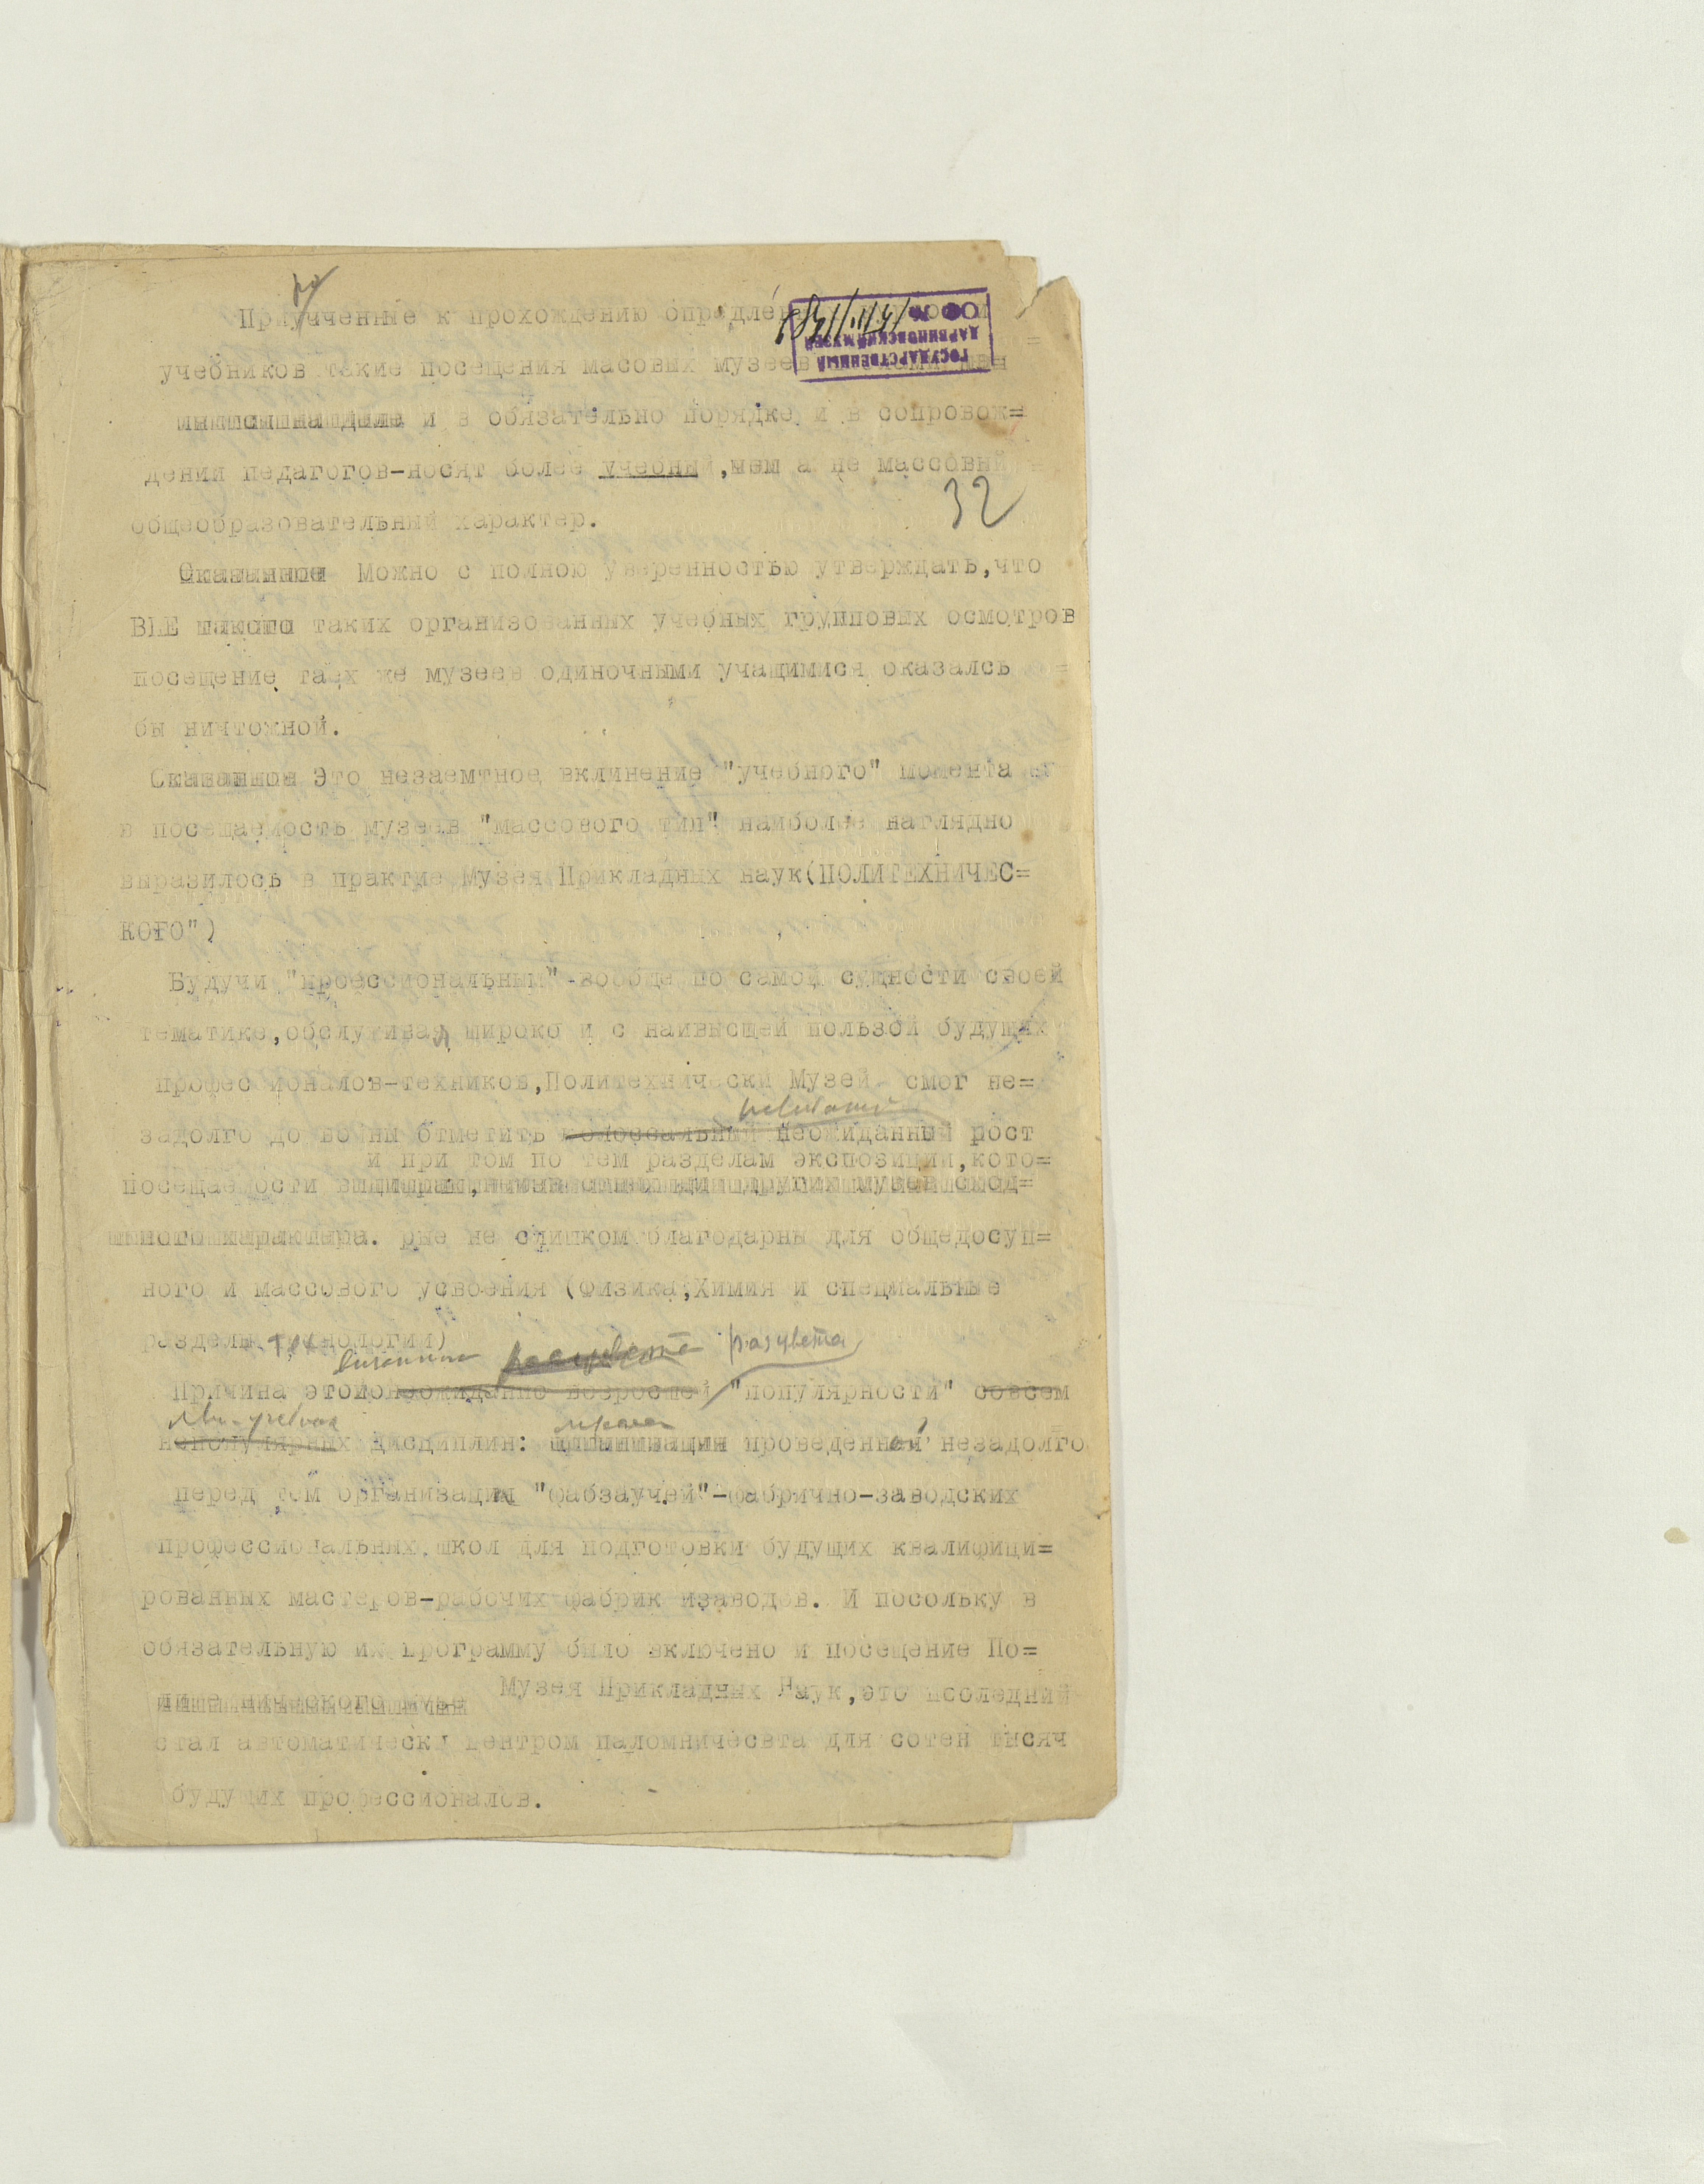 Приученные к прохождению
учебников такие посещения масовых музеев
и в обязательно порядке и в сопровож=
дении педагогов-носят более учебный, а не массовый
32
общеобразовательный характер.
Сказанное Можно с полною уверенностью утверждать,что
ВНЕ такого таких организованных учебных групповых осмотров
посещение таех же музеев одиночными учащимися оказалсь
бы ничтожной.
Сказанное Это незаемтное вклинение "учебного" момента
в посещаемость музеев "массового тип" наиболее наглядно
выразилось в практие Музея Прикладных наук(ПОЛИТЕХНИЧЕС=
КОГО")
Будучи "проессиональным"-вообще по самой сущности своей
тематике,обслуживая широко и с наивысшей пользой будущих
професионалов-техников,Политехнически Музей смог не=
задолго до войны отметить колоссальный неожиданный рост
и при том по тем разделам экспозиции,кото=
посещаемости других музев сход=
ного характера. рые не слишком благодарны для общедоступ=
ного и массового усвоения (Физика;Химия и специальные
разделы технологии)
расцвета
Причина этой неожиданно возросшей "популярности" совсем
непопулярных дисциплин: проведенной незадолго
перед тем организации "фабзаучей"-фабрично-заводских
профессиональных школ для подготовки будущих квалифици=
рованных мастеров-рабочих фабрик изаводов. И посольку в
обязательную их программу было включено и посещение По=
литехнического музея Музея Прикладных Наук,это псоледний
стал автоматически центром паломничесвта для сотен тысяч
будущих профессионалов.
ГОСУДАРСТВЕННЫЙ
ДАРВИНОВСКИЙ МУЗЕЙ